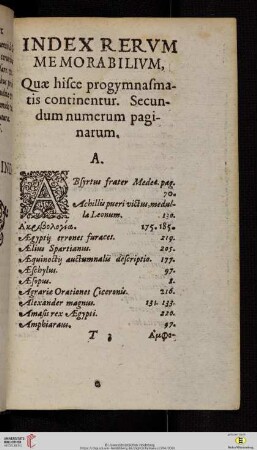 INDEX RERVM
MEMORABILIVM,
Quæ hisce progymnasma-
tis continentur. Secun-
dum numerum pagi-
narum.
A.
ABsyrtus frater Medeæ. pag.
70.
Achillis pueri victus, medul-
la Leonum. 130.
Ακριβολογία. 175. 185.
Ægyptij errones furaces. 219.
Ælius Spartianus. 205.
Æquinoctij auctumnalis descriptio. 177.
Æschylus. 97.
Æsopus. 2.
Agrariæ Orationes Ciceronis. 216.
Alexander magnus. 131. 133.
Amasis rex Ægypti. 220.
Amphiaraus. 97.
T 3 Αμφι-